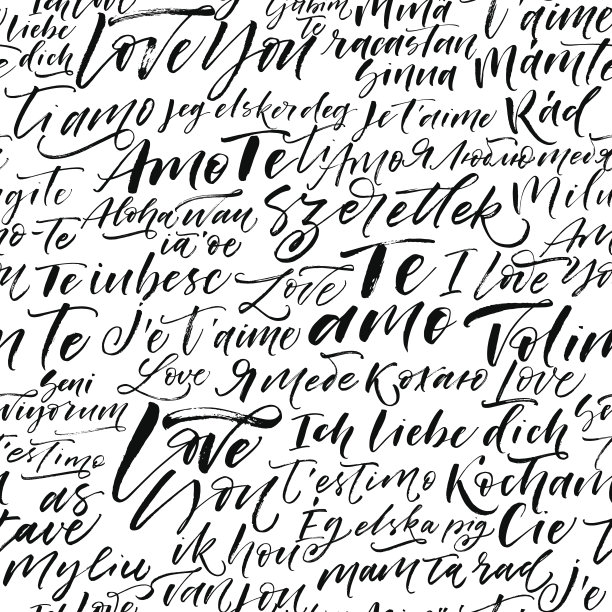 Ich
liebe
dich
Love You
Te
racastan
Sinna
Minä
t'aime
Mám te
ti amo
Jeg elsker deg
Je t'aime
Rád
Amo Te
ti Amo
Я люблю тебя
Aloha wau
iā 'oe
Szeretlek
Milu
Te iubesc
Love
Te
amo
I love
Te
J'e t'aime
Volim
Seni
viyorum
Love
Я тебе кохаю
Love
Love
You
Ich liebe dich
t'estimo
t'estimo
Kocham
Cię
as
tave
Ég elska þig
Myliu
ik hou
van jou
mam ta rad
J'e
Ich
Love